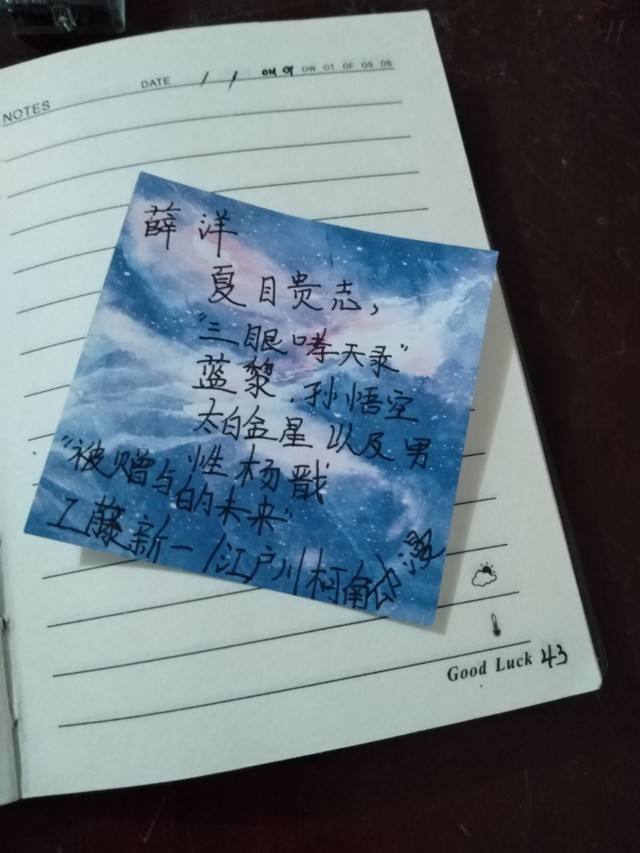 NOTES
DATE / /
OM OT OW OT OF OS OS
薛洋
夏目贵志，
“三眼哮天录”
蓝黎.孙悟空
太白金星以及男
性杨戬
“被赠与的未来”
工藤新一/江户川柯南
Good Luck 43